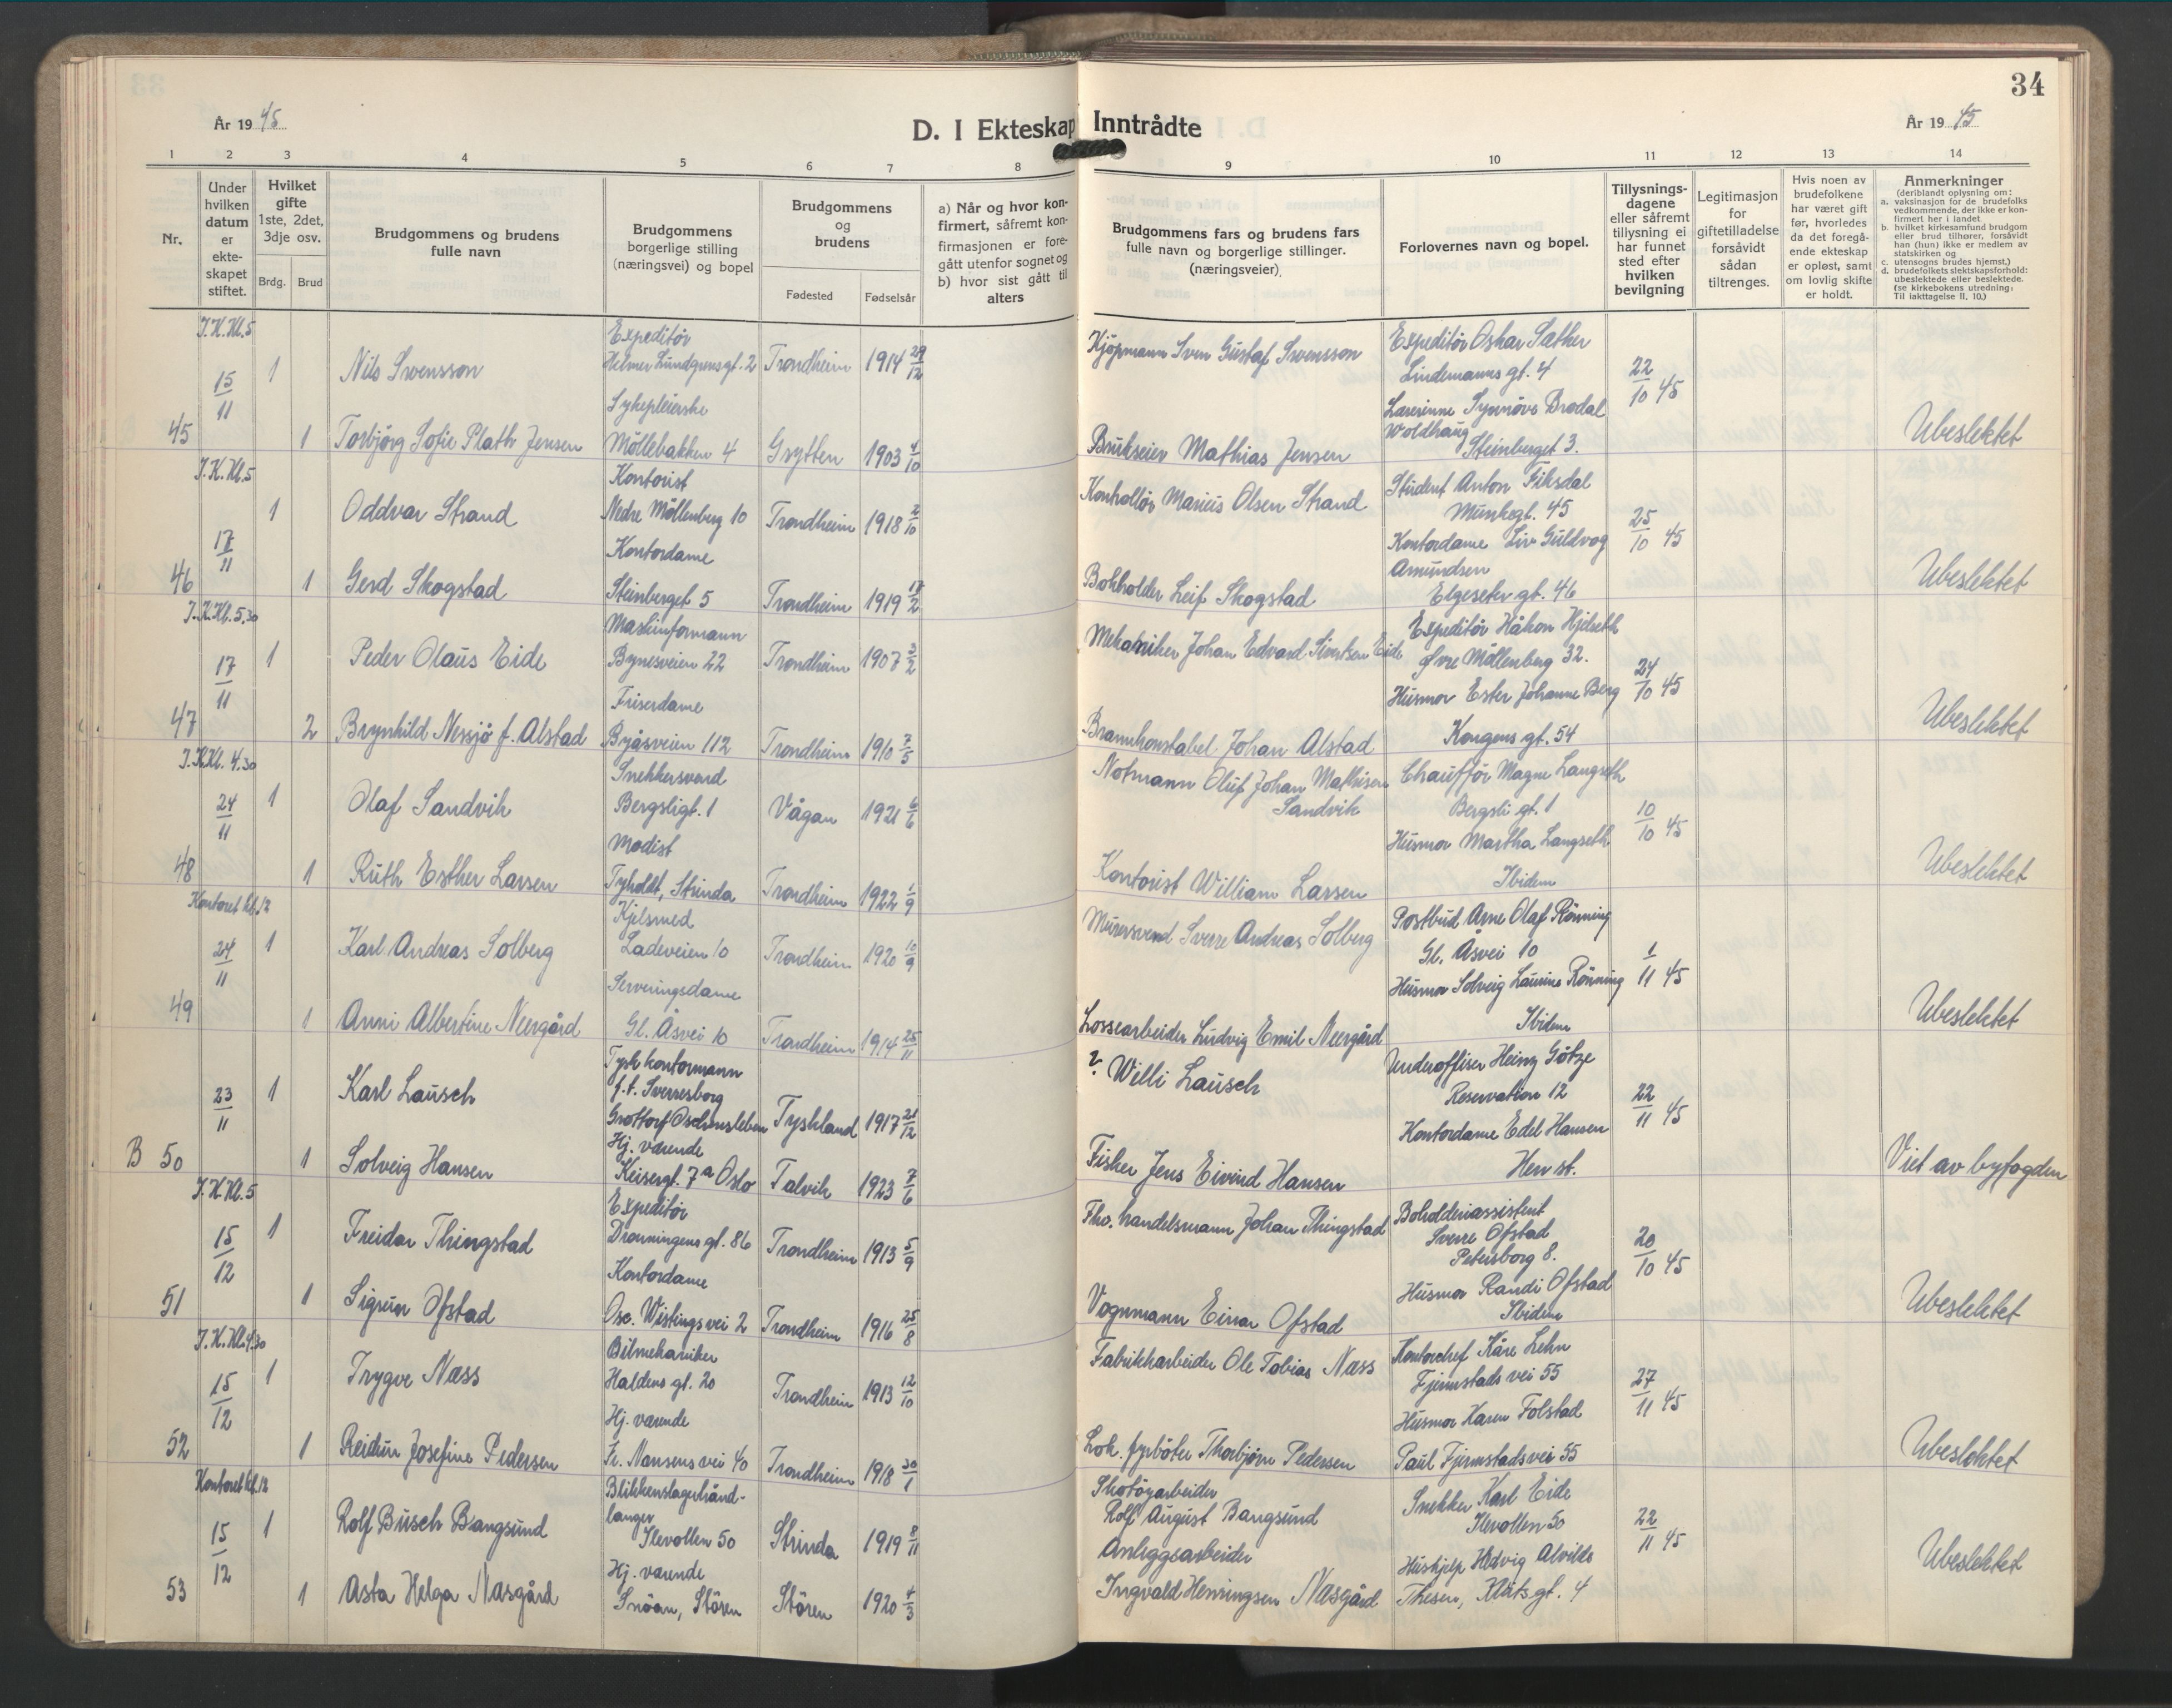 34
År 1945
D. I Ekteskap Inntrådte
År 1945
1 2 3 4 5 6 7 8 9 10 11 12 13 14
Nr.
Under hvilken datum er ekte-skapet stiftet.
Hvilket gifte 1ste, 2det, 3dje osv.
Brdg. Brud
Brudgommens og brudens fulle navn
Brudgommens borgerlige stilling (næringsvei) og bopel
Brudgommens og brudens
Fødested Fødselsår
a) Når og hvor kon-firmert, såfremt kon-firmasjonen er fore-gått utenfor sognet og
b) hvor sist gått til alters
Brudgommens fars og brudens fars fulle navn og borgerlige stillinger. (næringsveier).
Forlovernes navn og bopel.
Tillysnings-dagene eller såfremt tillysning ei har funnet sted efter hvilken bevilgning
Legitimasjon for giftetilladelse forsåvidt sådan tiltrenges.
Hvis noen av brudefolkene har været gift før, hvorledes da det foregå-ende ekteskap er opløst, samt om lovlig skifte er holdt.
Anmerkninger
(deriblandt oplysning om:
a. vaksinasjon for de brudefolks vedkommende, der ikke er kon-firmert her i landet.
b. hvilket kirkesamfund brudgom eller brud tilhører, forsåvidt han (hun) ikke er medlem av statskirken og
c. utensogns brudes hjemst.)
d. brudefolkets slektskapsforhold: ubeslektede eller beslektede. (se kirkebokens utredning: Til iakttagelse II, 10.)
I.K.Kl.5
15/11 1 Nils Svensson Expeditör Helmer Lundgrensgt. 2 Trondheim 1914 29/12 Kjöpmann Sven Gustaf Svensson Expeditör Oskar Sæther Lindemanns gt. 4 22/10 45
45 1 Torbjörg Sofie Plath Jensen Sykepleierske Möllebakken 4 Grytten 1903 4/10 Brukseier Mathias Jensen Lærerinne Synnöve Brodal Woldhaug Steinberget 3. Ubeslektet
I.K.Kl.5
17/11 1 Oddvar Strand Kontorist Nedre Möllenberg 10 Trondheim 1918 2/10 Kontrollör Marius Olsen Strand Student Anton Fiksdal Munkegt. 45 25/10 45
46 1 Gerd Skogstad Kontordame Steinberget 5 Trondheim 1919 17/2 Bokholder Leif Skogstad Kontordame Liv Guldvog Amundsen Elgeseter gt. 46 Ubeslektet
I.K.Kl.5.30
17/11 1 Peder Olaus Eide Maskinformann Bynesveien 22 Trondheim 1907 3/2 Mekaniker Johan Edvard Sivertsen Eide Expeditör Håkon Hjelseth Øvre Möllenberg 32. 24/10 45
47 2 Brynhild Nessjö f. Alstad Friserdame Byåsveien 112 Trondheim 1910 7/5 Brannkonstabel Johan Alstad Husmor Ester Johanne Berg Kongens gt. 54 Ubeslektet
I.K.Kl. 4.30
24/11 1 Olaf Sandvik Snekkersvend Bergsligt. 1 Vågan 1921 6/6 Notmann Oluf Johan Mathisen Sandvik Chaufför Magne Langseth Bergsli gt. 1 10/10 45
48 1 Ruth Esther Larsen Modist Tyholdt, Strinda Trondheim 1922 1/9 Kontorist William Larsen Husmor Martha Langseth Ibidem Ubeslektet
Kontoret kl. 12
24/11 1 Karl Andreas Solberg Kjelsmed Ladeveien 10 Trondheim 1920 10/9 Murersvend Sverre Andreas Solberg Postbud Arne Olaf Rönning Gl. Åsvei 10 1/11 45
49 1 Anni Albertine Neergård Serveringsdame Gl. Åsvei 10 Trondheim 1914 25/11 Lossearbeider Ludvig Emil Neergård Husmor Solveig Laurine Rönning Ibidem Ubeslektet
23/11 1 Karl Lausch Tysk kontormann f.t. Sverresborg Grottorf Oschersleben Tyskland 1917 21/12 ? Willi Lausch Underoffiser Heinz Götze Reservation 12 22/11 45
B 50 1 Solveig Hansen Hj. værende Keisergt. 7a Oslo Talvik 1923 7/6 Fisker Jens Eivind Hansen Kontordame Edel Hansen Her st. Viet av byfogden
I.K.Kl.5
15/12 1 Freidar Thingstad Expeditör Dronningens gt. 86 Trondheim 1913 5/9 Fho. handelsmann Johan Thingstad Bokholderiassistent Sverre Ofstad Petersborg 8. 20/10 45
51 1 Sigrun Ofstad Kontordame Osc. Wistings vei 2 Trondheim 1916 25/8 Vognmann Einar Ofstad Husmor Randi Ofstad Ibidem Ubeslektet
I.K.Kl.4.30
15/12 1 Trygve Næss Bilmekaniker Haldens gt. 20 Trondheim 1913 12/10 Fabrikkarbeider Ole Tobias Næss Kontorchef Kåre Lehn Fjermstads vei 55 27/11 45
52 1 Reidun Josefine Pedersen Hj. værende Fr. Nansens vei 40 Trondheim 1918 30/1 Lok. fyrböter Thorbjörn Pedersen Husmor Karen Folstad Paul Fjermstadsvei 55 Ubeslektet
Kontoret kl. 12
15/12 1 Rolf Busch Bangsund Blikkenslagerhånd-langer Ilevollen 50 Strinda 1919 8/11 Skotöyarbeider Rolf August Bangsund Snekker Karl Eide Ilevollen 50 22/11 45
53 1 Asta Helga Næsgård Hj. værende Snöan, Stören Stören 1920 4/3 Anleggsarbeider Ingvald Henningsen Næsgård Hushjelp Hedvig Alvilde Thesen, Kläts gt. 4 Ubeslektet